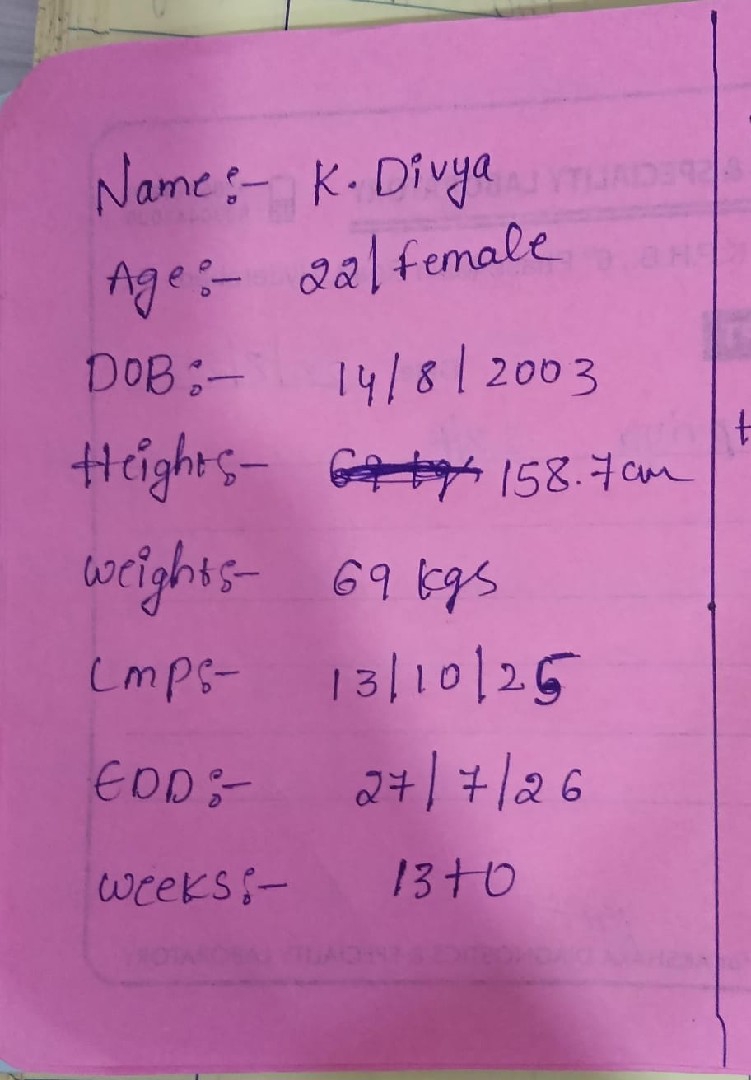 Name:- K. Divya
Age:- 22/female
DOB:- 14/8/2003
Height:- 158.7cm
Weight:- 69 kgs
LMP:- 13/10/25
EDD:- 27/7/26
Weeks:- 13+0